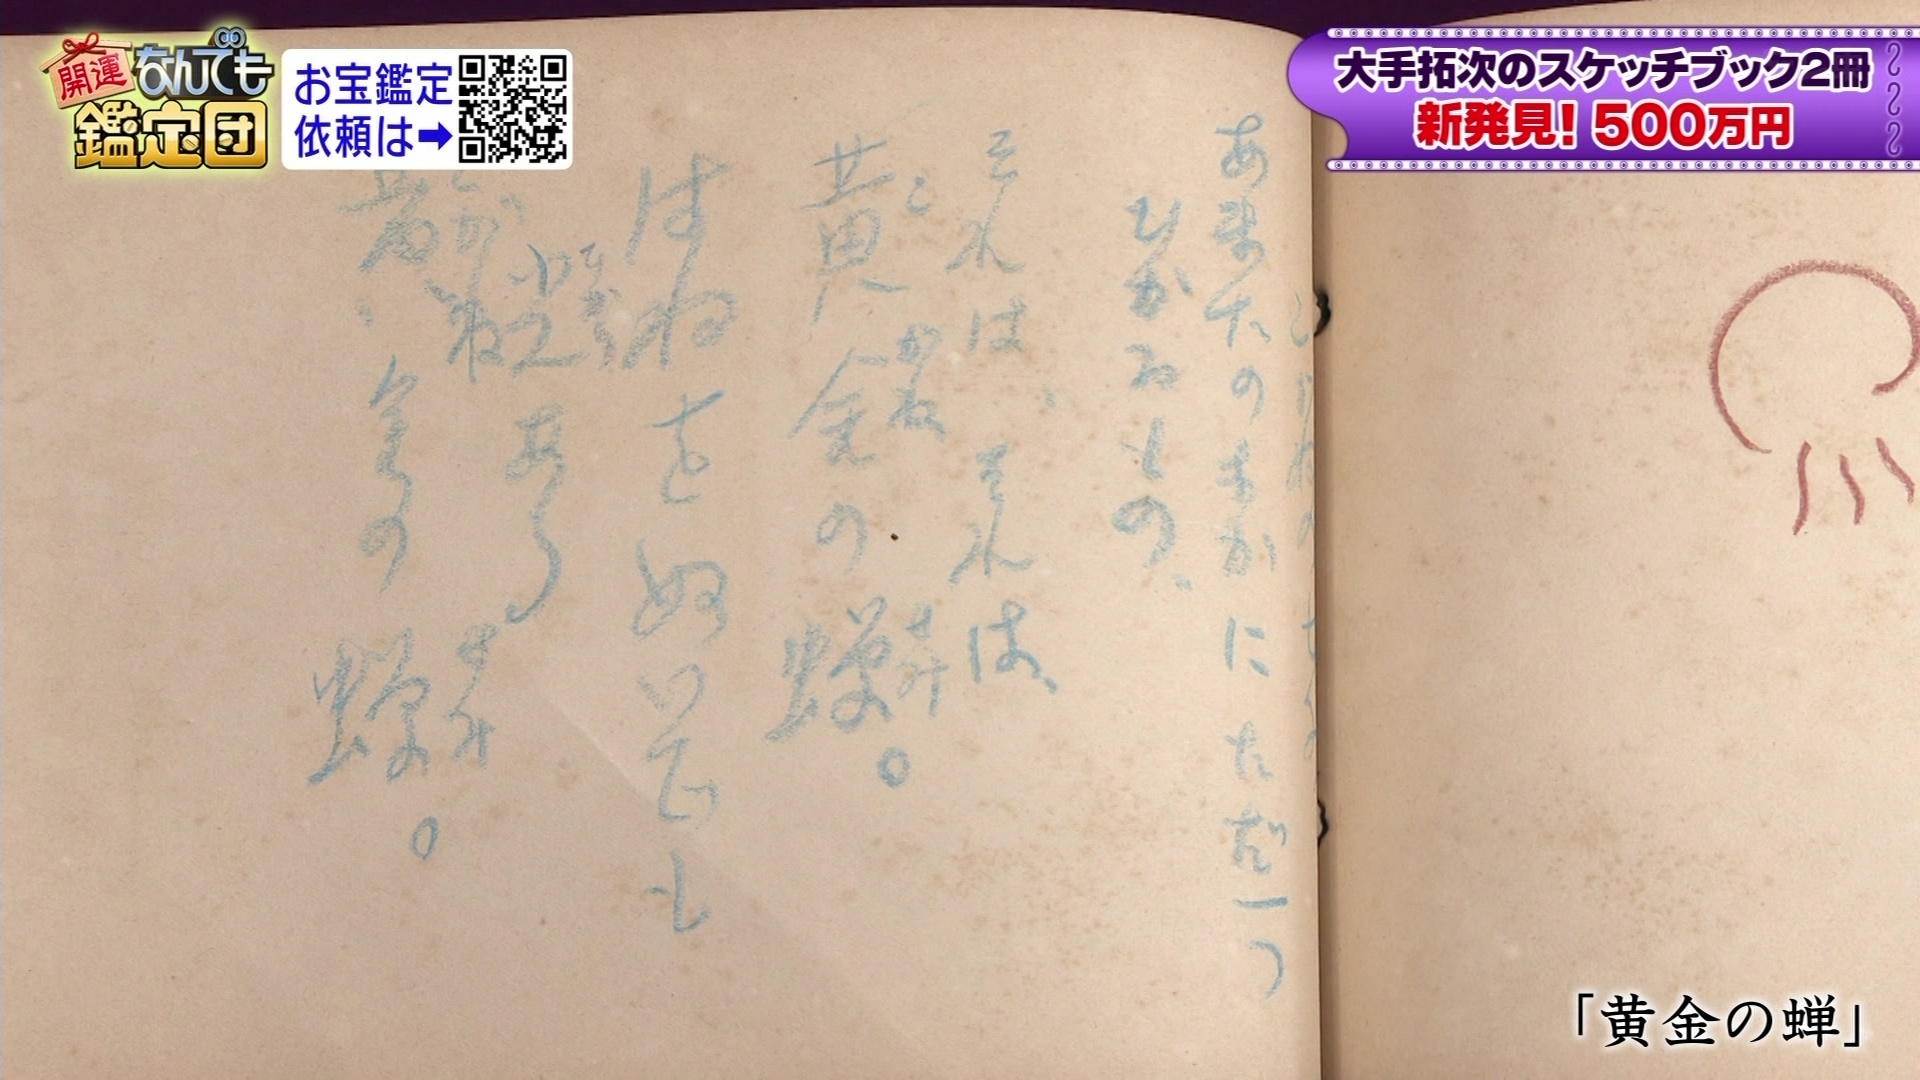 開運
なんでも
鑑定団
お宝鑑定
依頼は➡
大手拓次のスケッチブック2冊
新発見! 500万円
あまたのなかにただ一つ
ひかるもの、
それは、それは、
黄金の蟬。
こ がね せみ
はねをぬいでも
ある
黄金の蟬。
こがね せみ
「黄金の蝉」